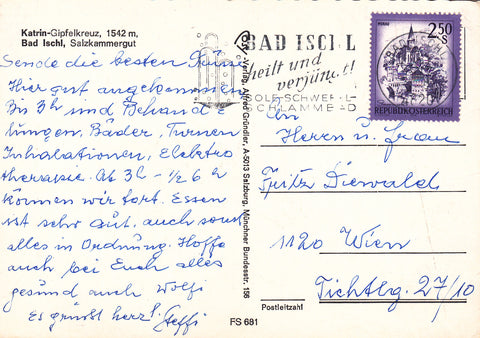 Katrin-Gipfelkreuz, 1542 m,
Bad Ischl, Salzkammergut
Sende die besten Grüße
Hier gut angekommen
Bis 3h sind Behandl
lungen, Bäder, Turnen
Inhalationen, Elektro
therapie. Ab 3h - ½ 6 h
können wir fort. Essen
ist sehr gut, auch sonst
alles in Ordnung. Hoffe
auch bei Euch alles
gesund auch Wolfi
Es grüßt herzl. Steffi
Cosy-Verlag, Alfred Gründler, A-5013 Salzburg, Münchner Bundesstr. 156
BAD ISCHL
heilt und
verjüngt!
SOLE-SCHWEFEL-
SCHLAMMBAD
2.50
S
REPUBLIK ÖSTERREICH
An
Herrn u. Frau
Fritz Diewald
1120 Wien
Tichtlg. 27/10
Postleitzahl
FS 681